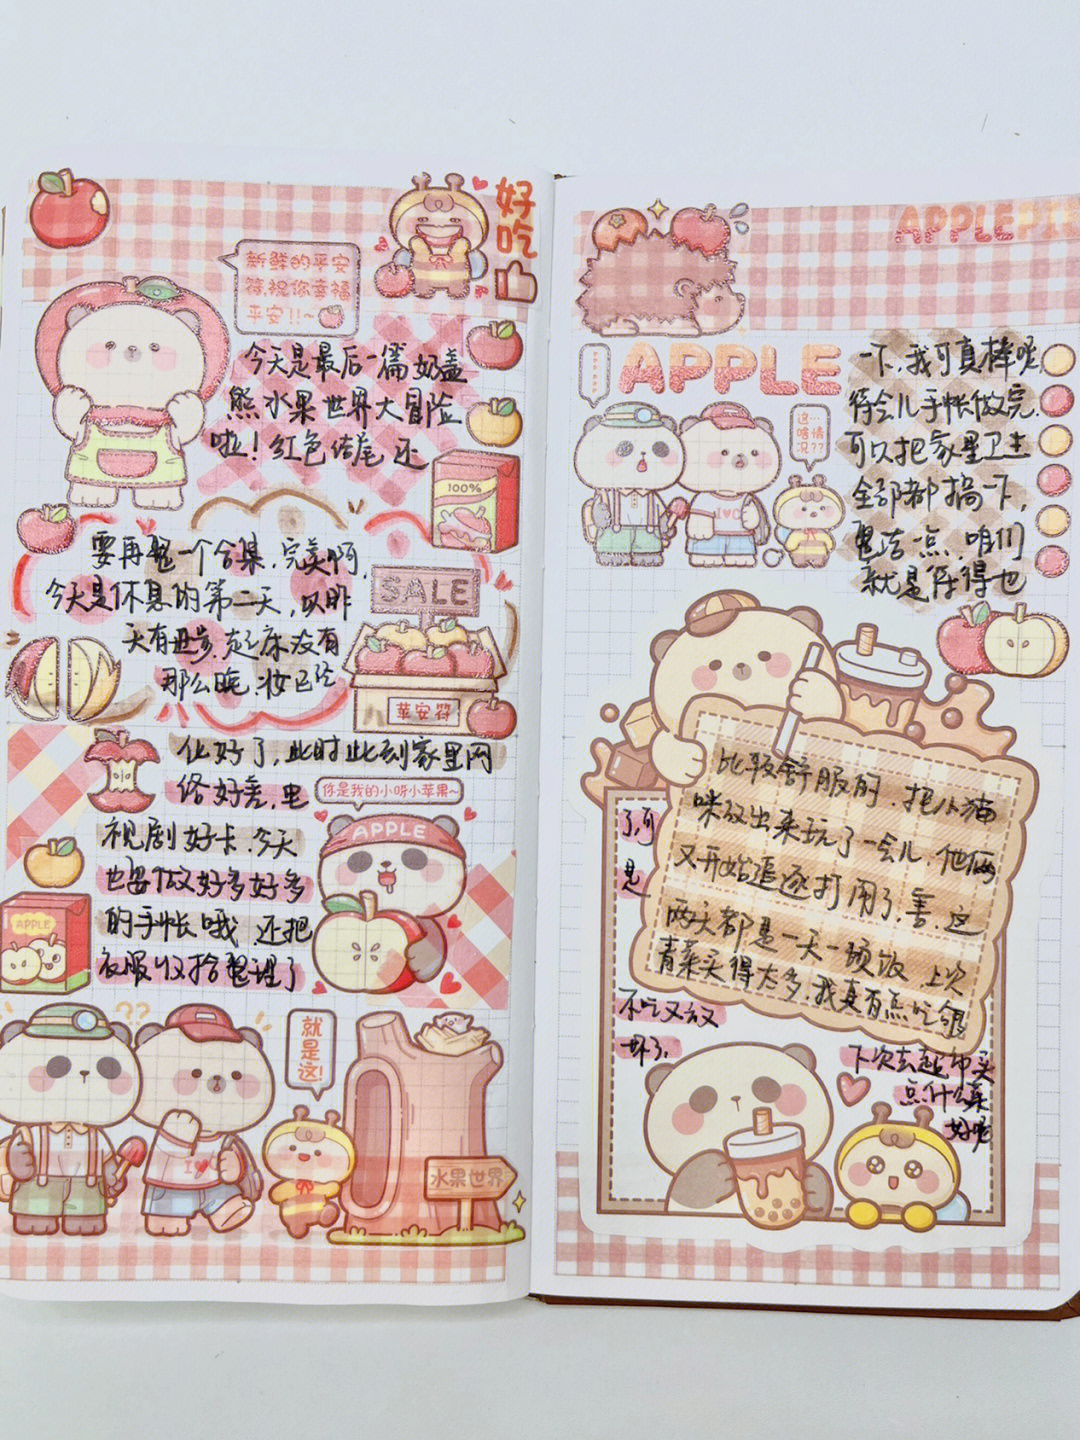 好吃
新鲜的平安
符,祝你幸福
平安!!~
今天是最后一篇奶盖
熊水果世界大冒险
啦!红色结尾还
100%
要再整一个合集.完美啊,
SALE
今天是休息的第二天,以昨
天有进步.起床没有
那么晚.妆已经
苹安符
化好了,此时此刻家里网
络好差,电
你是我的小呀小苹果~
视剧好卡.今天
APPLE
也要做好多好多
的手帐哦 还把
APPLE
衣服收拾整理了
??
就是这!
水果世界
APPLEPIE
APPLE
这…
啥情
况??
一下,我可真棒呢,
待会儿手帐做完.
可以把家里卫生
全部都搞一下,
整洁一点,咱们
就是住得也
比较舒服的.把小猫
咪放出来玩了一会儿.他俩
又开始追逐打闹了.害.这
两天都是一天一顿饭 上次
青菜买得太多.我真有点吃得
了,可
是
不吃又放
坏了.
下次去超市买
点什么菜
好呢